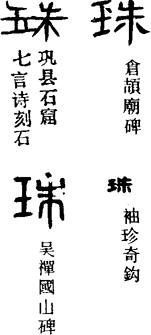 珠
倉頡廟碑
珠
巩县石窟
七言诗刻石
珠
袖珍奇鈎
珠
吴禪國山碑